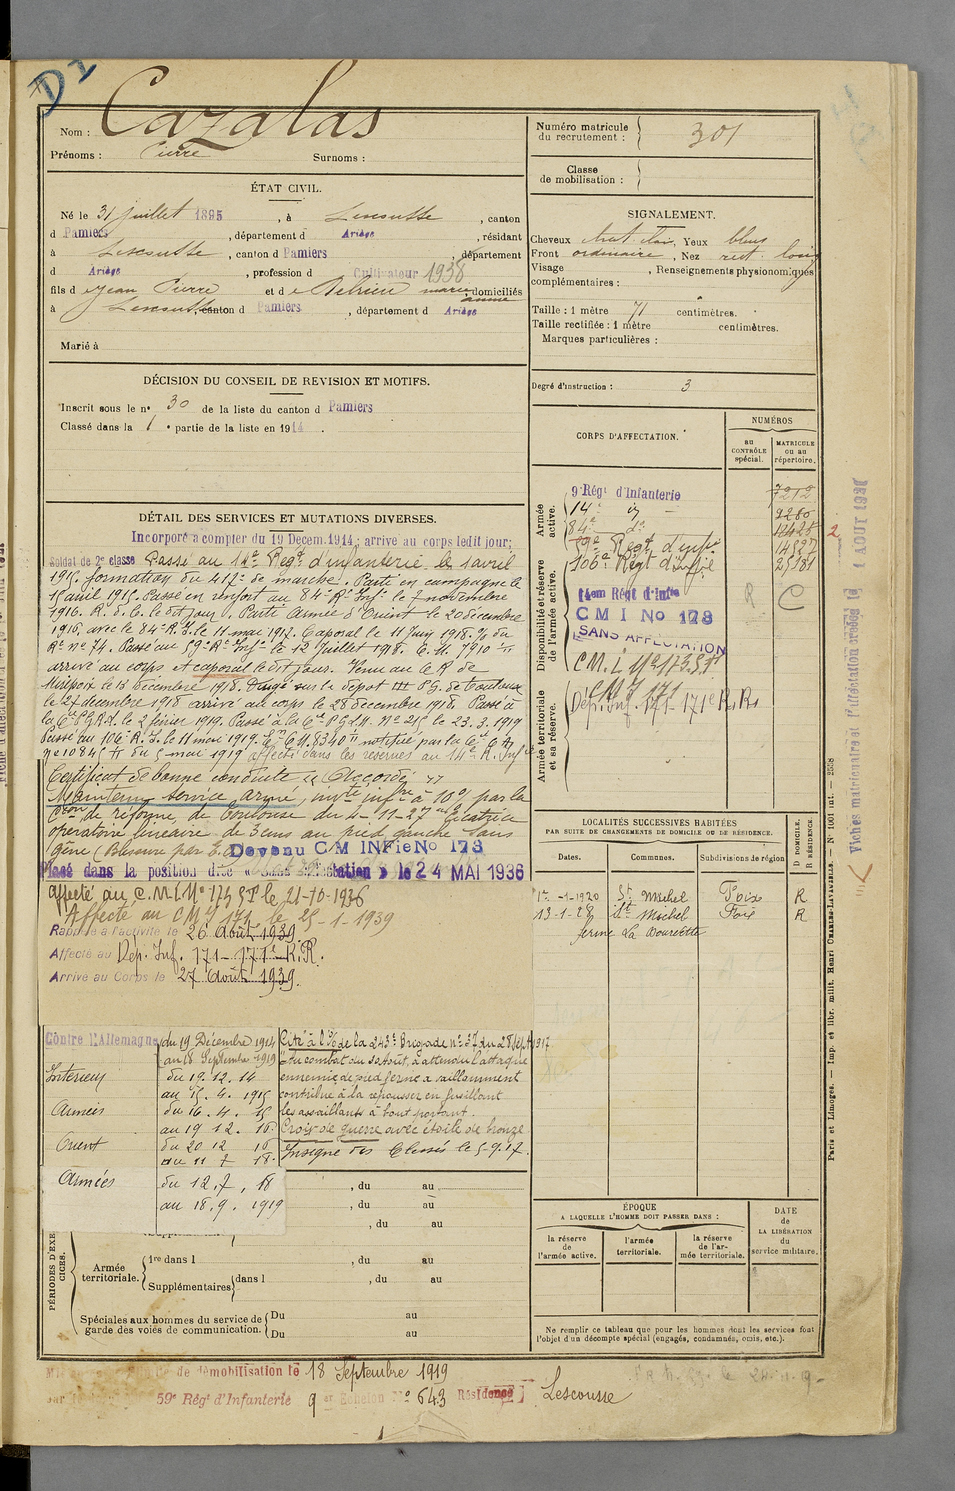 D 2
Nom : Cazalas
Prénoms : Pierre Surnoms :
ÉTAT CIVIL.
Né le 31 juillet 1895, à Lescousse, canton
d Pamiers, département d Ariège, résidant
à Lescousse, canton d Pamiers, département
d Ariège, profession d Cultivateur 1938
fils d e Jean Pierre et d e Delrieu marie domiciliés
anne
à Lescousse, canton d Pamiers, département d Ariège
Marié à
DÉCISION DU CONSEIL DE REVISION ET MOTIFS.
Inscrit sous le n° 30 de la liste du canton d Pamiers
Classé dans la 1e partie de la liste en 1914.
DÉTAIL DES SERVICES ET MUTATIONS DIVERSES.
Incorporé à compter du 19 Décem. 1914; arrivé au corps ledit jour;
Soldat de 2e classe Passé au 14e Regt d'infanterie le 1 avril
1915. formation du 412e de marche. Parti en campagne le
15 avril 1915. Passé en renfort au 84e Rt Inft le 7 novembre
1916. R. d. C. le dit jour. Parti Armée d'Orient le 20 décembre
1916, avec le 84e R.I. le 11 mai 1917. Caporal le 11 Juin 1918. % du
Rt n° 74. Passé au 59e Rt Inft le 12 juillet 1918. C. M. 7910
arrivé au corps et caporal le dit jour. Venu au C R de
Mirepoix le 13 décembre 1918. Dirigé sur le dépot III PG. de Toulouse
le 27 decembre 1918 arrivé au corps le 28 décembre 1918. Passé à
la Cie PGRL le 2 février 1919. Passé à la Cie PGLM. N° 215 le 23.3.1919
Passé au 106e R.I. le 11 mai 1919. C.M. 8340 notifiée par la
n° 10845 du 5 mai 1919 affecté dans les réserves au 14e R. Inf
Certificat de bonne conduite " Accordé "
Maintenu service armé, invté infre à 10% par la
Con de réforme de Toulouse du 4-11-27 Cicatrice
opératoire linéaire de 3 cms au pied gauche sans
gêne (Blessure par
Devenu C/M INFie No 173
Placé dans la position dite « Sans affectation » le 24 MAI 1936
affecté au C.M.I. N° 173 SP le 21-10-1936
Affecté au CMI 171 le 25-1-1939
Rappelé à l'activité le 26 Août 1939
Affecté au Dép. Inf. 171 - 171e R.R.
Arrivé au Corps le 27 Août 1939.
Contre l'Allemagne du 19 Décembre 1914
au 18 Septembre 1919
Intérieur du 19.12.14
au 15.4.1915
Armées du 16.4.15
au 19.12.16
Orient du 20 12 16
au 11 7 18.
Armées du 12.7.18
au 18.9.1919
Cité à l'O/ de la 243e Brigade n° 37 du 28 sept 1917
"Au combat du 12 Août, a attendu l'attaque
ennemie de pied ferme a vaillamment
contribué à la repousser en fusillant
les assaillants à bout portant.
Croix de guerre avec étoile de bronze
Insigne des blessés le 5-9.17.
, du au
, du au
, du au
PÉRIODES D'EXERCICES.
Supplémentaires
Armée territoriale.
1re dans l , du au
Supplémentaires dans l , du au
Spéciales aux hommes du service de garde des voies de communication.
Du au
Du au
de démobilisation le 18 Septembre 1919
59e Régt d'Infanterie 9 er Echelon N° 643 Résidence Lescousse
Numéro matricule du recrutement : 301
Classe de mobilisation :
SIGNALEMENT.
Cheveux chat. clair, Yeux bleus
Front ordinaire, Nez rect. long
Visage , Renseignements physionomiques
complémentaires :
Taille : 1 mètre 71 centimètres.
Taille rectifiée : 1 mètre centimètres.
Marques particulières :
Degré d'instruction : 3
CORPS D'AFFECTATION.
NUMÉROS
au CONTRÔLE spécial.
MATRICULE ou au répertoire.
Armée active.
9e Régt d'Infanterie 7212
14e d° 9260
84e d° 12425
59e Regt d'infie 14527
106e Régt d'infie 25181
2
Disponibilité et réserve de l'armée active.
14em Régt d'Infie
C M I No 173
SANS AFFECTATION
C.M.I. N° 173 SP
R
C
Armée territoriale et sa réserve.
CMI 171
Dép. Inf. 171 - 171e R.R.
LOCALITÉS SUCCESSIVES HABITÉES
PAR SUITE DE CHANGEMENTS DE DOMICILE OU DE RÉSIDENCE.
D DOMICILE. R RÉSIDENCE
Dates. Communes. Subdivisions de région
1er-1-1920 St Michel Foix R
13-1-28 St Michel Foix R
ferme La Bourdette
ÉPOQUE
A LAQUELLE L'HOMME DOIT PASSER DANS :
la réserve de l'armée active.
l'armée territoriale.
la réserve de l'armée territoriale.
DATE de LA LIBÉRATION du service militaire.
Ne remplir ce tableau que pour les hommes dont les services font
l'objet d'un décompte spécial (engagés, condamnés, omis, etc.).
Paris et Limoges. — Imp. et libr. milit. Henri CHARLES-LAVAUZELLE. — N° 1001 int. — 2558
Fiches matriculaire et d'affectation créées le 1 AOUT 1936